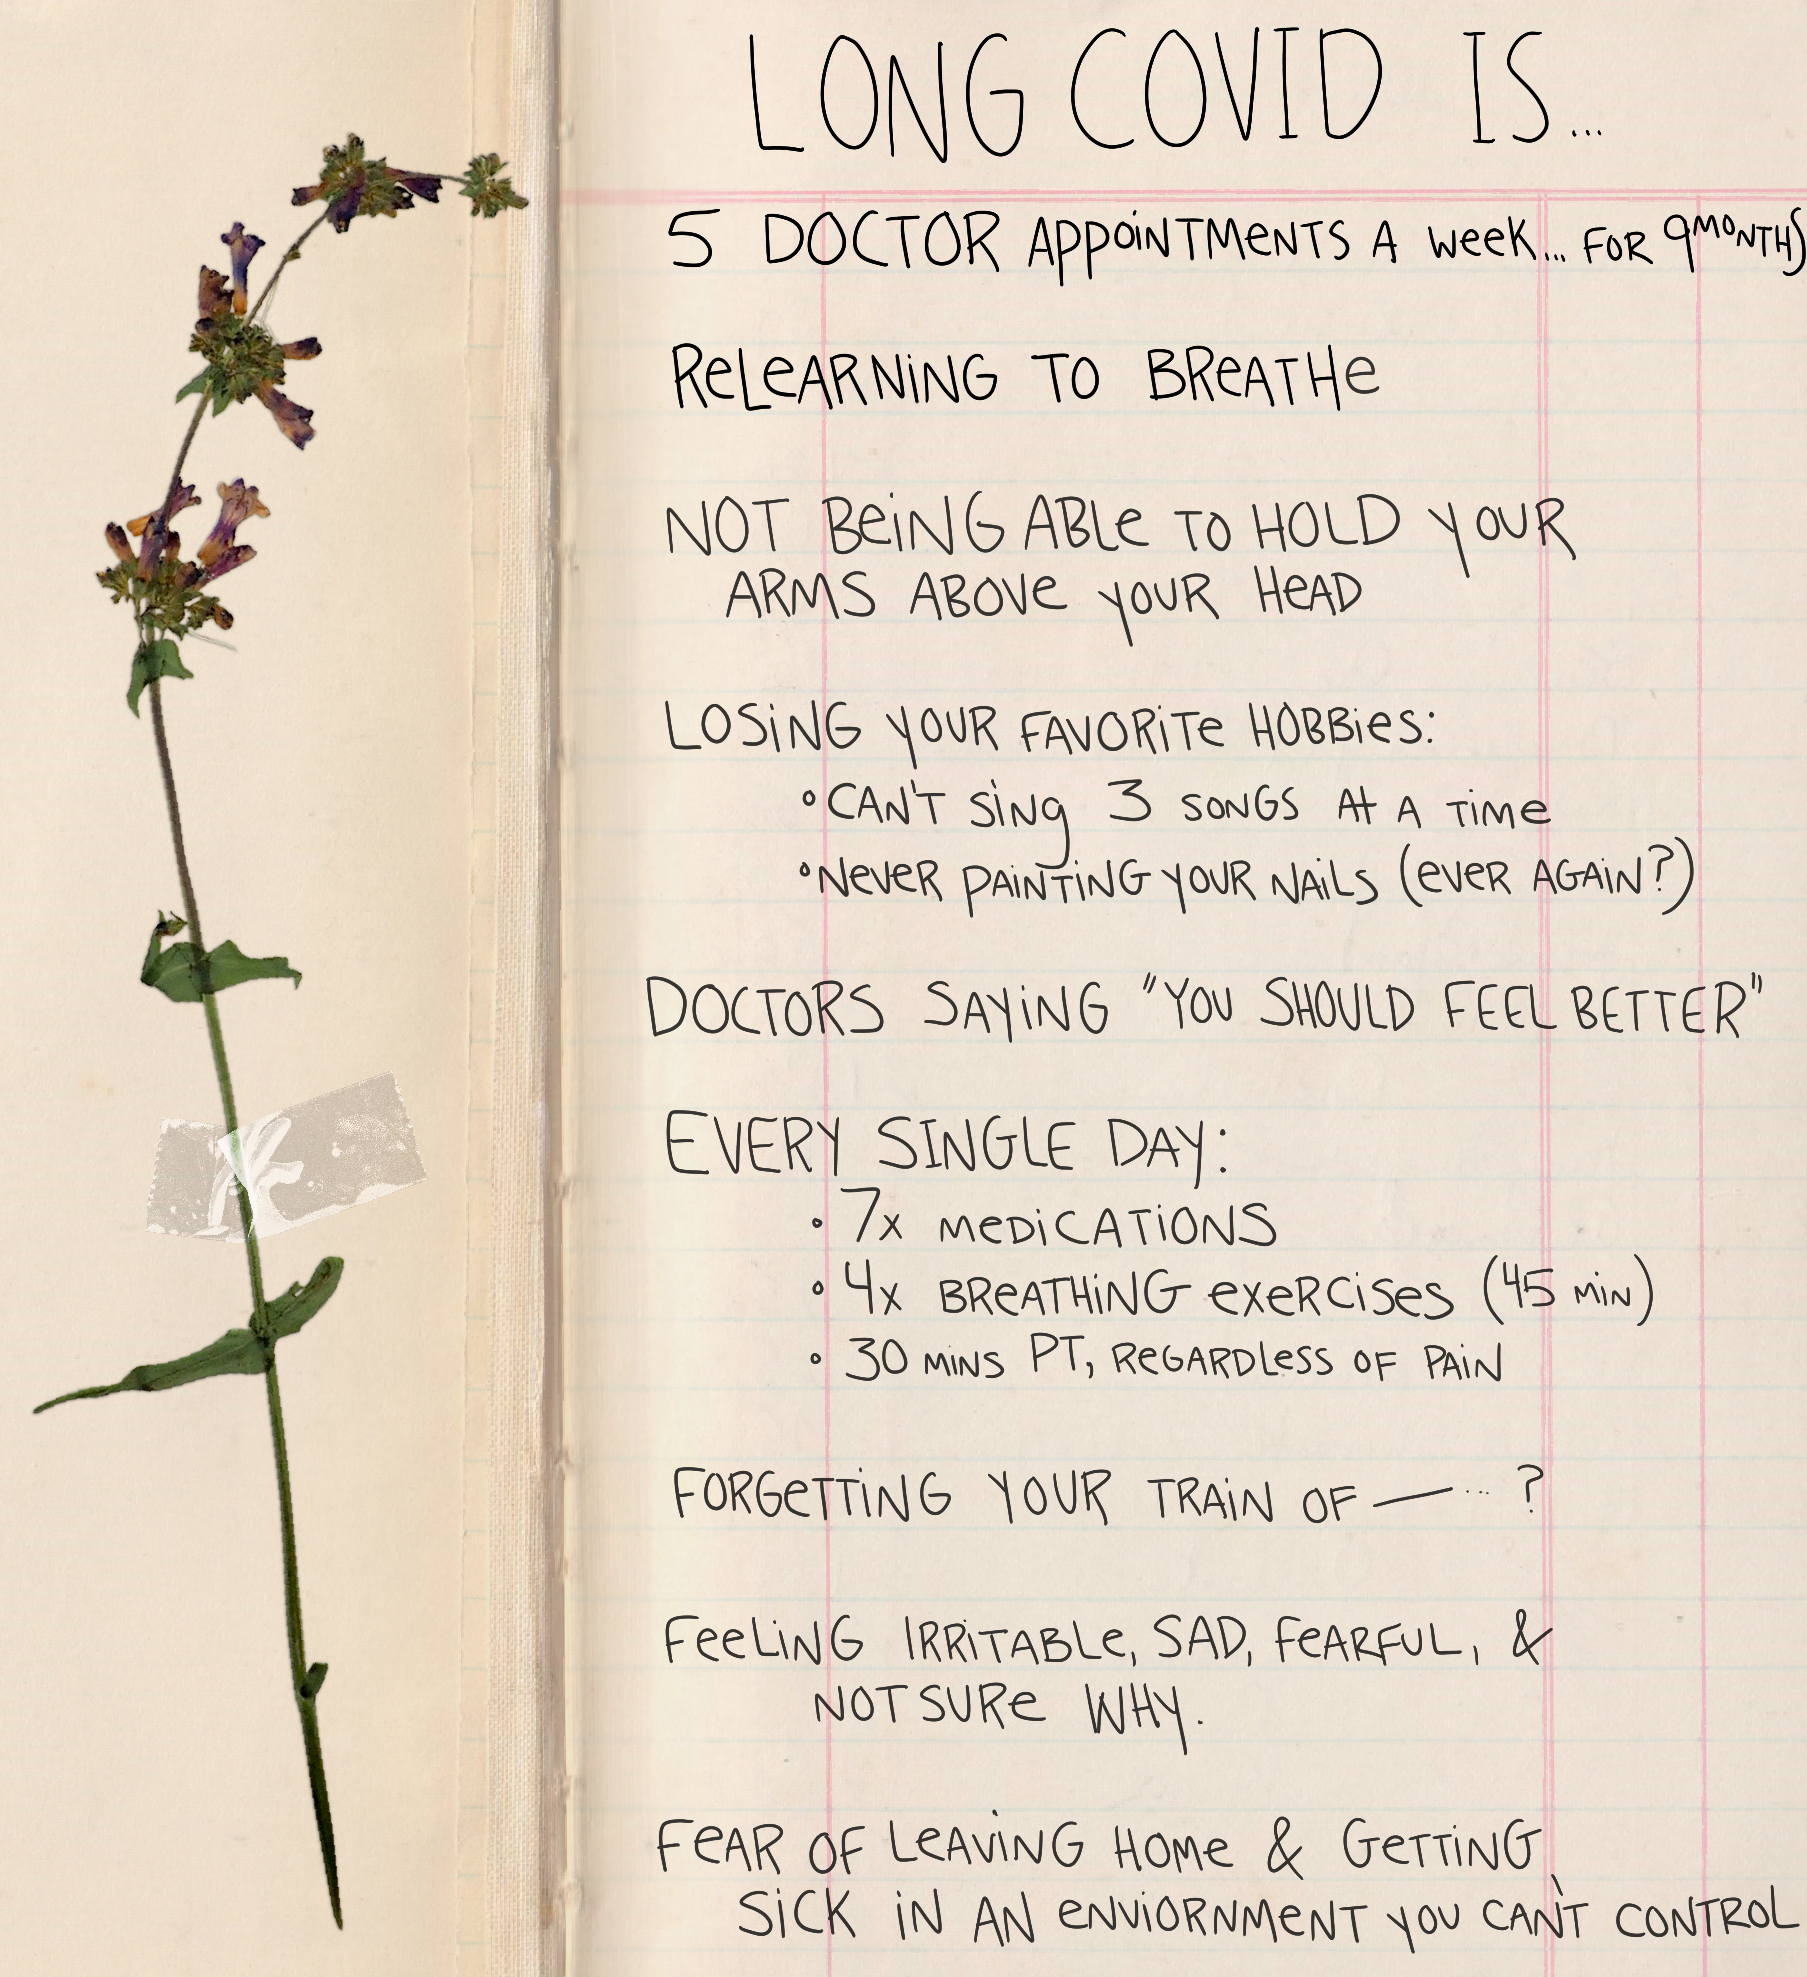 LONG COVID IS...
5 DOCTOR APPOINTMENTS A WEEK... FOR 9 MONTHS
RELEARNING TO BREATHE
NOT BEING ABLE TO HOLD YOUR
ARMS ABOVE YOUR HEAD
LOSING YOUR FAVORITE HOBBIES:
• CAN'T SING 3 SONGS AT A TIME
• NEVER PAINTING YOUR NAILS (EVER AGAIN?)
DOCTORS SAYING "YOU SHOULD FEEL BETTER"
EVERY SINGLE DAY:
• 7x MEDICATIONS
• 4x BREATHING EXERCISES (45 MIN)
• 30 MINS PT, REGARDLESS OF PAIN
FORGETTING YOUR TRAIN OF — ... ?
FEELING IRRITABLE, SAD, FEARFUL, &
NOT SURE WHY.
FEAR OF LEAVING HOME & GETTING
SICK IN AN ENVIORNMENT YOU CAN'T CONTROL